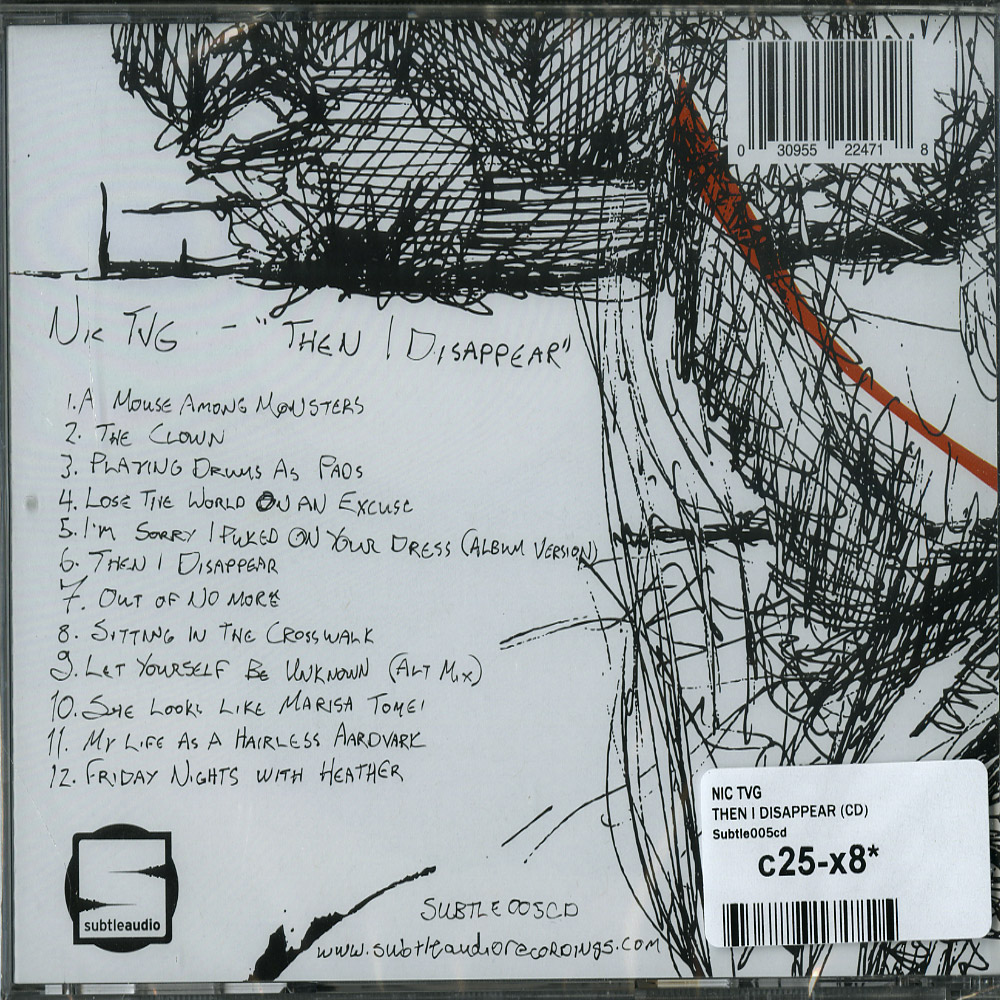 0 30955 22471 8
Nic TVG - "Then I Disappear"
1. A Mouse Among Monsters
2. The Clown
3. Playing Drums As Pads
4. Lose The World On An Excuse
5. I'm Sorry I Puked On Your Dress (Album Version)
6. Then I Disappear
7. Out of No More
8. Sitting In The Crosswalk
9. Let Yourself Be Unknown (Alt Mix)
10. She Looks Like Marisa Tomei
11. My Life As A Hairless Aardvark
12. Friday Nights With Heather
subtleaudio
SUBTLE005CD
www.subtleaudiorecordings.com
NIC TVG
THEN I DISAPPEAR (CD)
Subtle005cd
c25-x8*